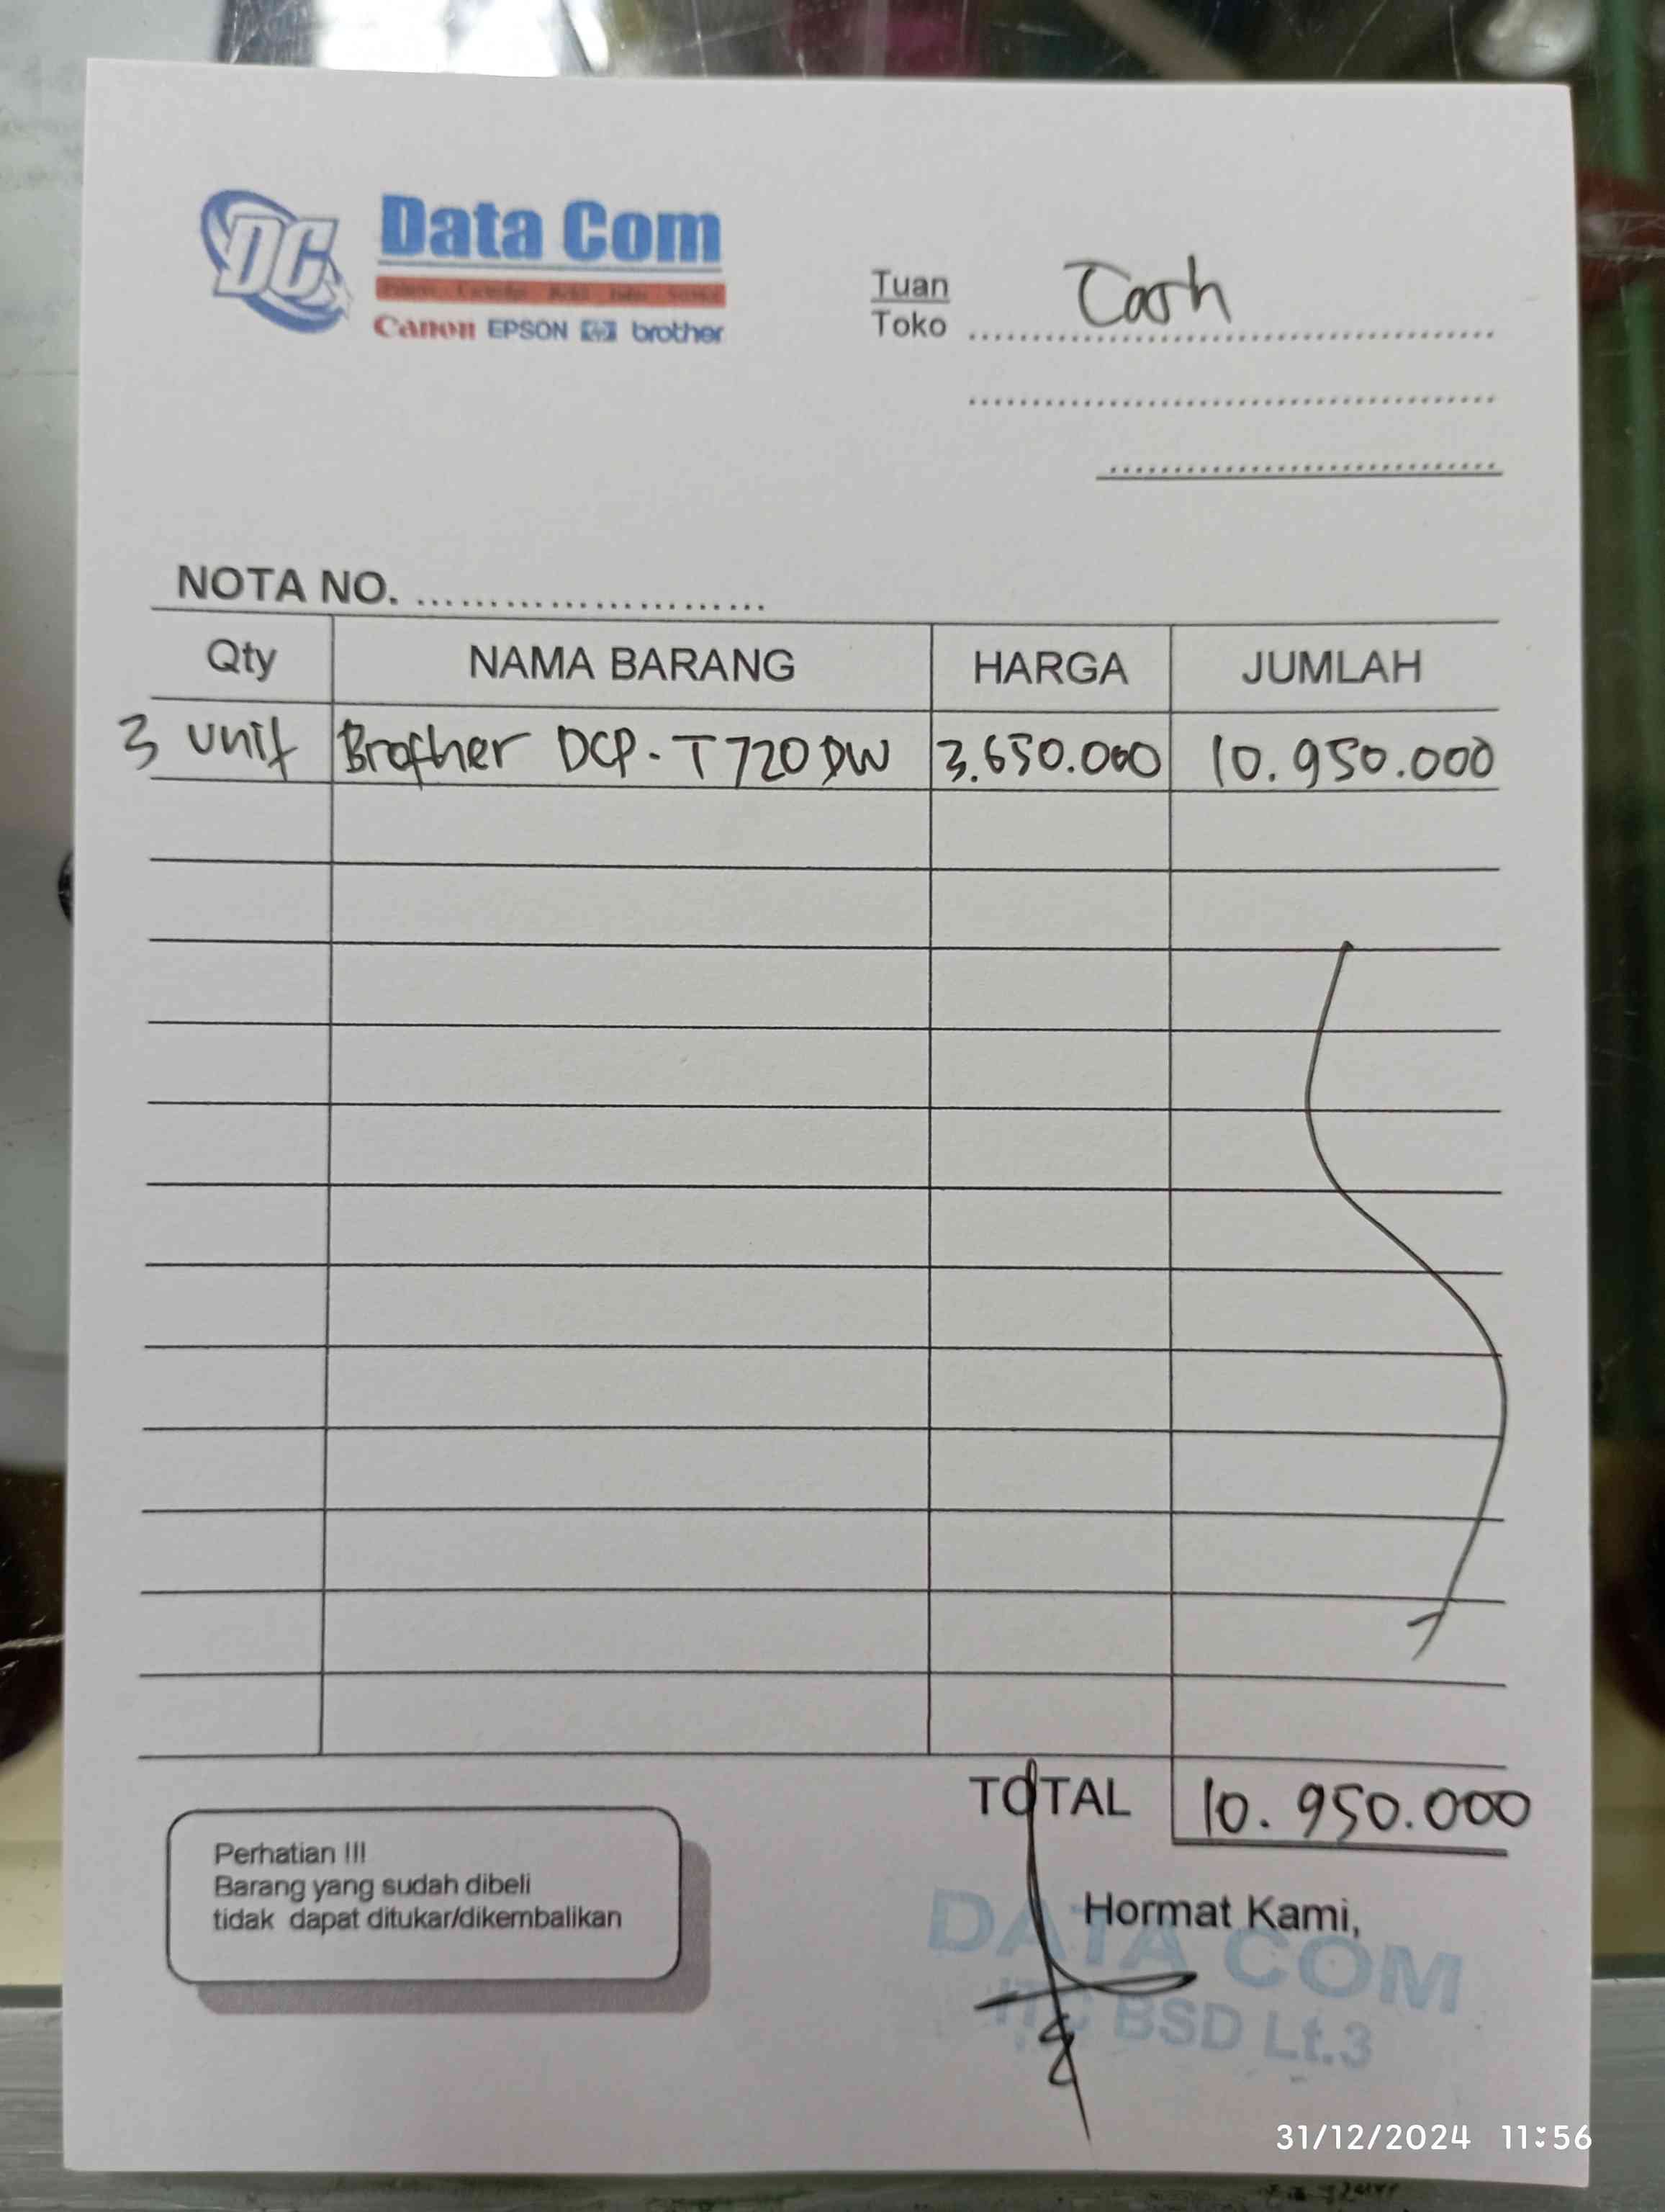 DC
Data Com
Canon EPSON hp brother
Tuan
Toko
Cash
NOTA NO.
Qty NAMA BARANG HARGA JUMLAH
3 unit Brother DCP-T720DW 3.650.000 10.950.000
TOTAL 10.950.000
Perhatian !!!
Barang yang sudah dibeli
tidak dapat ditukar/dikembalikan
Hormat Kami,
DATA COM
ITC BSD Lt.3
31/12/2024 11:56